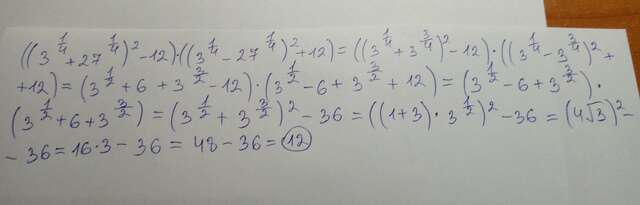 ((3^(1/4) + 27^(1/4))^2 - 12) · ((3^(1/4) - 27^(1/4))^2 + 12) = ((3^(1/4) + 3^(3/4))^2 - 12) · ((3^(1/4) - 3^(3/4))^2 +
+ 12) = (3^(1/2) + 6 + 3^(3/2) - 12) · (3^(1/2) - 6 + 3^(3/2) + 12) = (3^(1/2) - 6 + 3^(3/2)) ·
(3^(1/2) + 6 + 3^(3/2)) = (3^(1/2) + 3^(3/2))^2 - 36 = ((1+3) · 3^(1/2))^2 - 36 = (4√3)^2 -
- 36 = 16·3 - 36 = 48 - 36 = 12